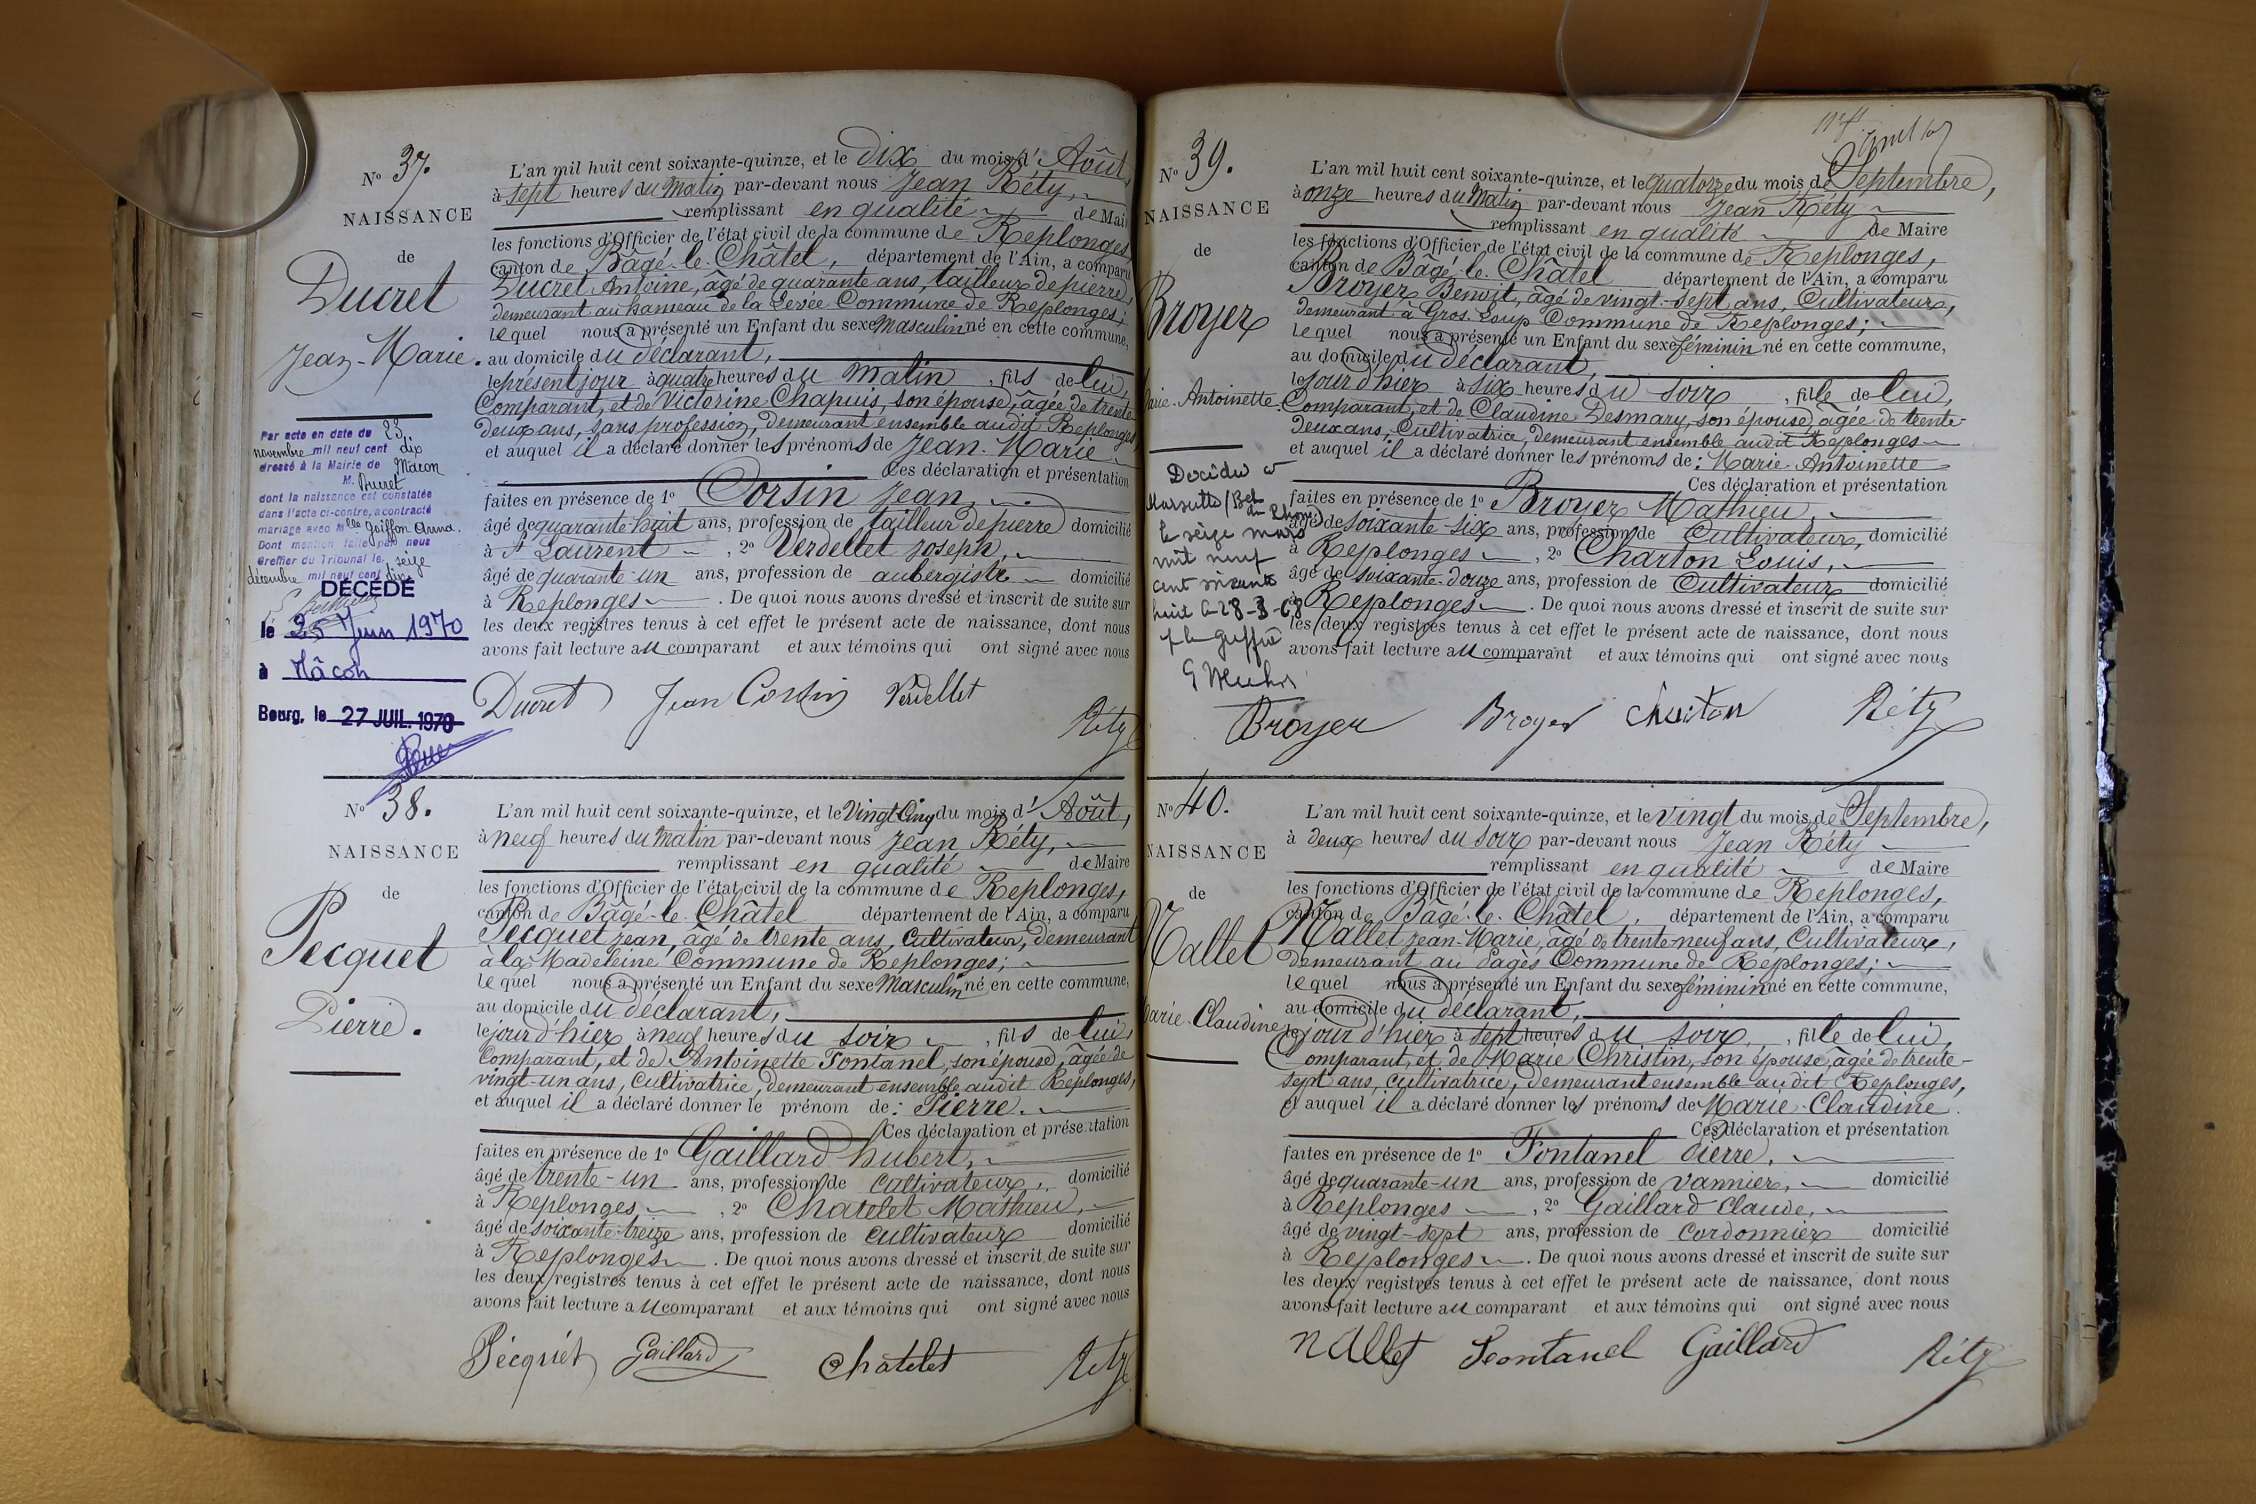 N° 37.
NAISSANCE
de
Ducret
Jean-Marie.
Par acte en date du 23
novembre mil neuf cent dix
dressé à la Mairie de Macon
M. Ducret
dont la naissance est constatée
dans l'acte ci-contre, a contracté
mariage avec Mlle Goiffon Anna.
Dont mention faite par nous
Greffier du Tribunal le seize
décembre mil neuf cent dix
DÉCÉDÉ
le 25 Juin 1970
à Mâcon
Bourg, le 27 JUIL. 1970
L'an mil huit cent soixante-quinze, et le dix du mois d'Août,
à sept heures du matin par-devant nous Jean Réty,
remplissant en qualité de Mai
les fonctions d'Officier de l'état civil de la commune de Replonges,
canton de Bâgé-le-Châtel, département de l'Ain, a comparu
Ducret Antoine, âgé de quarante ans, tailleur de pierre,
demeurant au hameau de la Levée Commune de Replonges;
lequel nous a présenté un Enfant du sexe Masculin né en cette commune,
au domicile du déclarant,
le présent jour à quatre heures du matin, fils de lui,
Comparant, et de Victorine Chapuis, son épouse, âgée de trente
deux ans, sans profession, demeurant ensemble audit Replonges
et auquel il a déclaré donner les prénoms de Jean-Marie
Ces déclaration et présentation
faites en présence de 1° Corsin Jean,
âgé de quarante huit ans, profession de tailleur de pierre domicilié
à St Laurent, 2° Verdellet Joseph,
âgé de quarante-un ans, profession de aubergiste domicilié
à Replonges. De quoi nous avons dressé et inscrit de suite sur
les deux registres tenus à cet effet le présent acte de naissance, dont nous
avons fait lecture au comparant et aux témoins qui ont signé avec nous
Ducret Jean Corsin Verdellet
Réty
N° 38.
NAISSANCE
de
Pecquet
Pierre.
L'an mil huit cent soixante-quinze, et le Vingt Cinq du mois d'Août,
à neuf heures du matin par-devant nous Jean Réty,
remplissant en qualité de Maire
les fonctions d'Officier de l'état civil de la commune de Replonges,
canton de Bâgé-le-Châtel département de l'Ain, a comparu
Pecquet Jean, âgé de trente ans, Cultivateur, demeurant
à la Madeleine Commune de Replonges;
lequel nous a présenté un Enfant du sexe Masculin né en cette commune,
au domicile du déclarant,
le jour d'hier à neuf heures du soir, fils de lui,
Comparant, et de Antoinette Fontanel, son épouse, âgée de
vingt-un ans, Cultivatrice, demeurant ensemble audit Replonges,
et auquel il a déclaré donner le prénom de: Pierre.
Ces déclaration et présentation
faites en présence de 1° Gaillard hubert,
âgé de trente-un ans, profession de cultivateur, domicilié
à Replonges, 2° Chatelet Mathieu,
âgé de soixante-treize ans, profession de cultivateur domicilié
à Replonges. De quoi nous avons dressé et inscrit de suite sur
les deux registres tenus à cet effet le présent acte de naissance, dont nous
avons fait lecture au comparant et aux témoins qui ont signé avec nous
Pécquet Gaillard Chatelet Réty
N° 39.
NAISSANCE
de
Broyer
Marie-Antoinette.
Décédée à
Marseille (Bches
du Rhône)
le seize mars
mil neuf
cent soixante
huit le 28-3-68
G
L'an mil huit cent soixante-quinze, et le quatorze du mois de Septembre,
à onze heures du matin par-devant nous Jean Réty
remplissant en qualité de Maire
les fonctions d'Officier de l'état civil de la commune de Replonges,
canton de Bâgé-le-Châtel département de l'Ain, a comparu
Broyer Benoit, âgé de vingt-sept ans, Cultivateur,
demeurant à Gros-Loup Commune de Replonges;
lequel nous a présenté un Enfant du sexe féminin né en cette commune,
au domicile du déclarant,
le jour d'hier à six heures du soir, fille de lui,
Comparant, et de Claudine Desmary, son épouse, âgée de trente-
deux ans, Cultivatrice, demeurant ensemble audit Replonges
et auquel il a déclaré donner les prénoms de: Marie-Antoinette
Ces déclaration et présentation
faites en présence de 1° Broyer Mathieu,
âgé de soixante-six ans, profession de Cultivateur, domicilié
à Replonges, 2° Charton Louis,
âgé de soixante-douze ans, profession de Cultivateur domicilié
à Replonges. De quoi nous avons dressé et inscrit de suite sur
les deux registres tenus à cet effet le présent acte de naissance, dont nous
avons fait lecture au comparant et aux témoins qui ont signé avec nous
Broyer Broyer Charton Réty
N° 40.
NAISSANCE
de
Nallet
Marie-Claudine
L'an mil huit cent soixante-quinze, et le vingt du mois de Septembre,
à deux heures du soir par-devant nous Jean Réty
remplissant en qualité de Maire
les fonctions d'Officier de l'état civil de la commune de Replonges,
canton de Bâgé-le-Châtel, département de l'Ain, a comparu
Nallet Jean-Marie, âgé de trente-neuf ans, Cultivateur,
demeurant au Pagès Commune de Replonges;
lequel nous a présenté un Enfant du sexe féminin né en cette commune,
au domicile du déclarant,
le jour d'hier à sept heures du soir, fille de lui,
Comparant, et de Marie Christin, son épouse, âgée de trente-
sept ans, cultivatrice, demeurant ensemble audit Replonges,
et auquel il a déclaré donner les prénoms de Marie-Claudine.
Ces déclaration et présentation
faites en présence de 1° Fontanel Pierre,
âgé de quarante-un ans, profession de Vannier, domicilié
à Replonges, 2° Gaillard Claude,
âgé de vingt-sept ans, profession de cordonnier domicilié
à Replonges. De quoi nous avons dressé et inscrit de suite sur
les deux registres tenus à cet effet le présent acte de naissance, dont nous
avons fait lecture au comparant et aux témoins qui ont signé avec nous
Nallet Feontanel Gaillard Réty